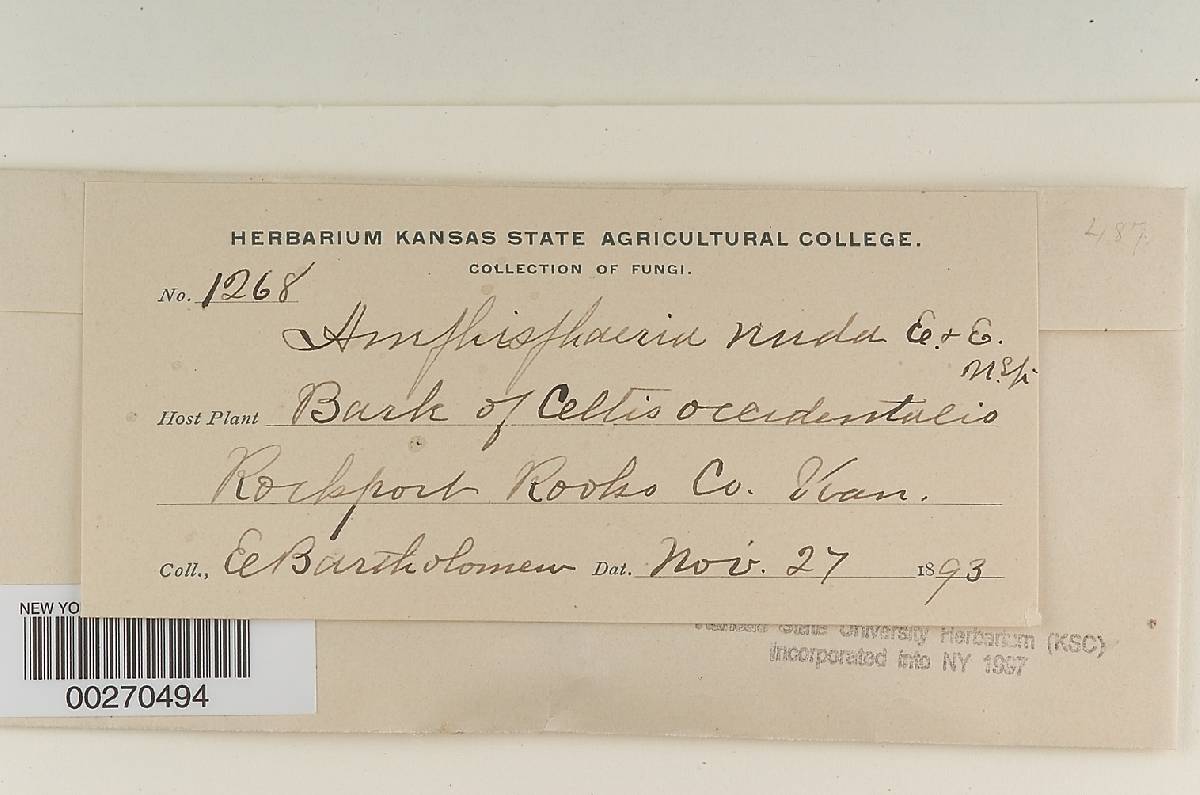 HERBARIUM KANSAS STATE AGRICULTURAL COLLEGE.
COLLECTION OF FUNGI.
487
No. 1268
Amphisphaeria nuda E. & E.
n. sp.
Host Plant Bark of Celtis occidentalis
Rockport Rooks Co. Kan.
Coll., E Bartholomew Dat. Nov. 27 1893
Kansas State University Herbarium (KSC)
incorporated into NY 1997
NEW YO
00270494